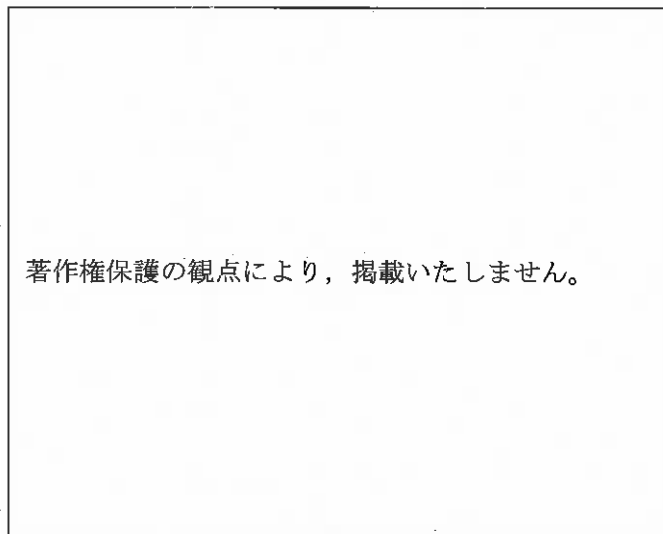 著作権保護の観点により，掲載いたしません。